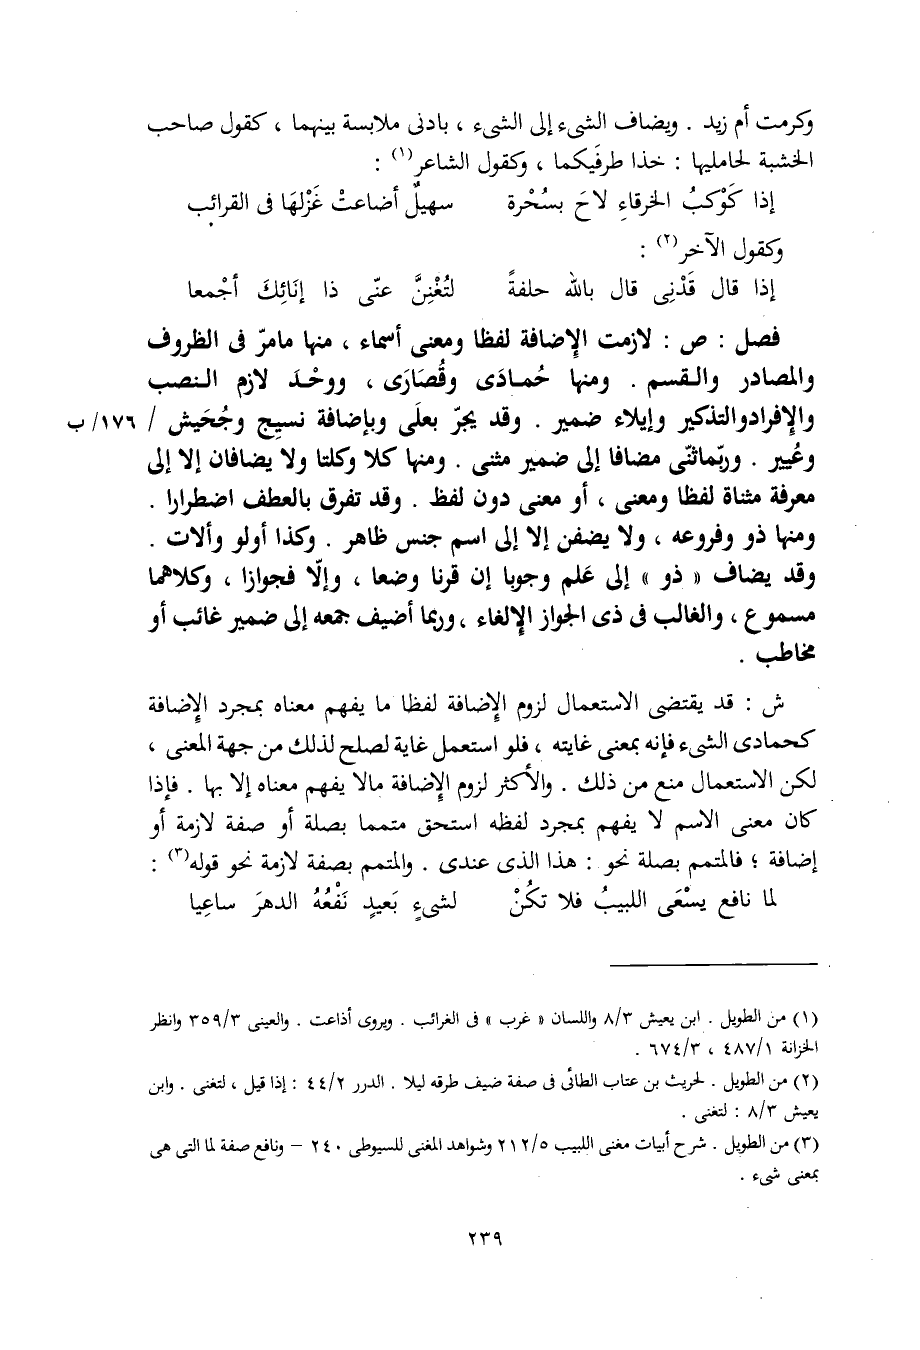 وكرمت أم زيد . ويضاف الشىء إلى الشىء ، بادنى ملابسة بينهما ، كقول صاحب
الخشبة لحامليها : خذا طرفَيكما ، وكقول الشاعر(١) :
إذا كَوْكبُ الخرقاءِ لاحَ بسُحْرة سهيلٌ أضاعتْ غَزْلهَا فى القرائب
وكقول الآخر(٢) :
إذا قال قَدْنِى قال بالله حلفةً لتُغْنِنَّ عنّى ذا إنَائِكَ أجْمعا
فصل : ص : لازمت الإضافة لفظا ومعنى أسماء ، منها مامرّ فى الظروف
والمصادر والقسم . ومنها حُمادَى وقُصَارَى ، ووحْدَ لازم النصب
والإفرادوالتذكير وإيلاء ضمير . وقد يجرّ بعلَى وبإضافة نسيج وجُحَيش / ١٧٦/ ب
وعُيير . وربّماثنّى مضافا إلى ضمير مثنى . ومنها كلا وكلتا ولا يضافان إلا إلى
معرفة مثناة لفظا ومعنى ، أو معنى دون لفظ . وقد تفرق بالعطف اضطرارا .
ومنها ذو وفروعه ، ولا يضفن إلا إلى اسم جنس ظاهر . وكذا أولو وألات .
وقد يضاف « ذو » إلى عَلم وجوبا إن قرنا وضعا ، وإلّا فجوازا ، وكلاهما
مسموع ، والغالب فى ذى الجواز الإلغاء ، وربما أضيف جمعه إلى ضمير غائب أو
مخاطب .
ش : قد يقتضى الاستعمال لزوم الإضافة لفظا ما يفهم معناه بمجرد الإضافة
كحمادى الشىء فإنه بمعنى غايته ، فلو استعمل غاية لصلح لذلك من جهة المعنى ،
لكن الاستعمال منع من ذلك . والأكثر لزوم الإضافة مالا يفهم معناه إلا بها . فإذا
كان معنى الاسم لا يفهم بمجرد لفظه استحق متمما بصلة أو صفة لازمة أو
إضافة ؛ فالمتمم بصلة نحو : هذا الذى عندى . والمتمم بصفة لازمة نحو قوله(٣) :
لما نافع يسْعَى اللبيبُ فلا تكُنْ لشىءٍ بَعيدٍ نَفْعُهُ الدهرَ ساعِيا
(١) من الطويل . ابن يعيش ٨/٣ واللسان « غرب » فى الغرائب . ويروى أذاعت . والعينى ٣٥٩/٣ وانظر
الخزانة ٤٨٧/١ ، ٦٧٤/٣ .
(٢) من الطويل . لحريث بن عتاب الطائى فى صفة ضيف طرقه ليلا . الدرر ٤٤/٢ : إذا قيل ، لتغنى . وابن
يعيش ٨/٣ : لتغنى .
(٣) من الطويل . شرح أبيات مغنى اللبيب ٢١٢/٥ وشواهد المغنى للسيوطى ٢٤٠ – ونافع صفة لما التى هى
بمعنى شىء .
٢٣٩